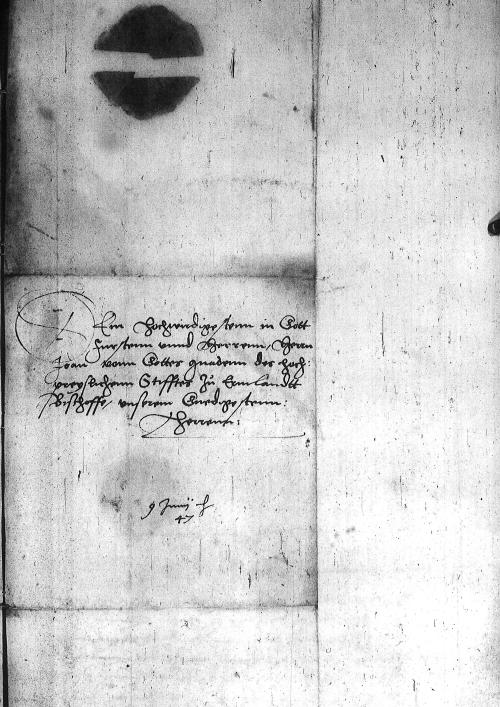 Dem Hochwirdigestenn in Gott
Furstenn vnnd Herrenn, Herrn
Joan vonn Gottes gnadenn des hoch:
preyslichenn Stifftes zu Ermlandtt
Bischoffe, vnserem Gnedigestenn:
Herrenn:
9 Junij
47